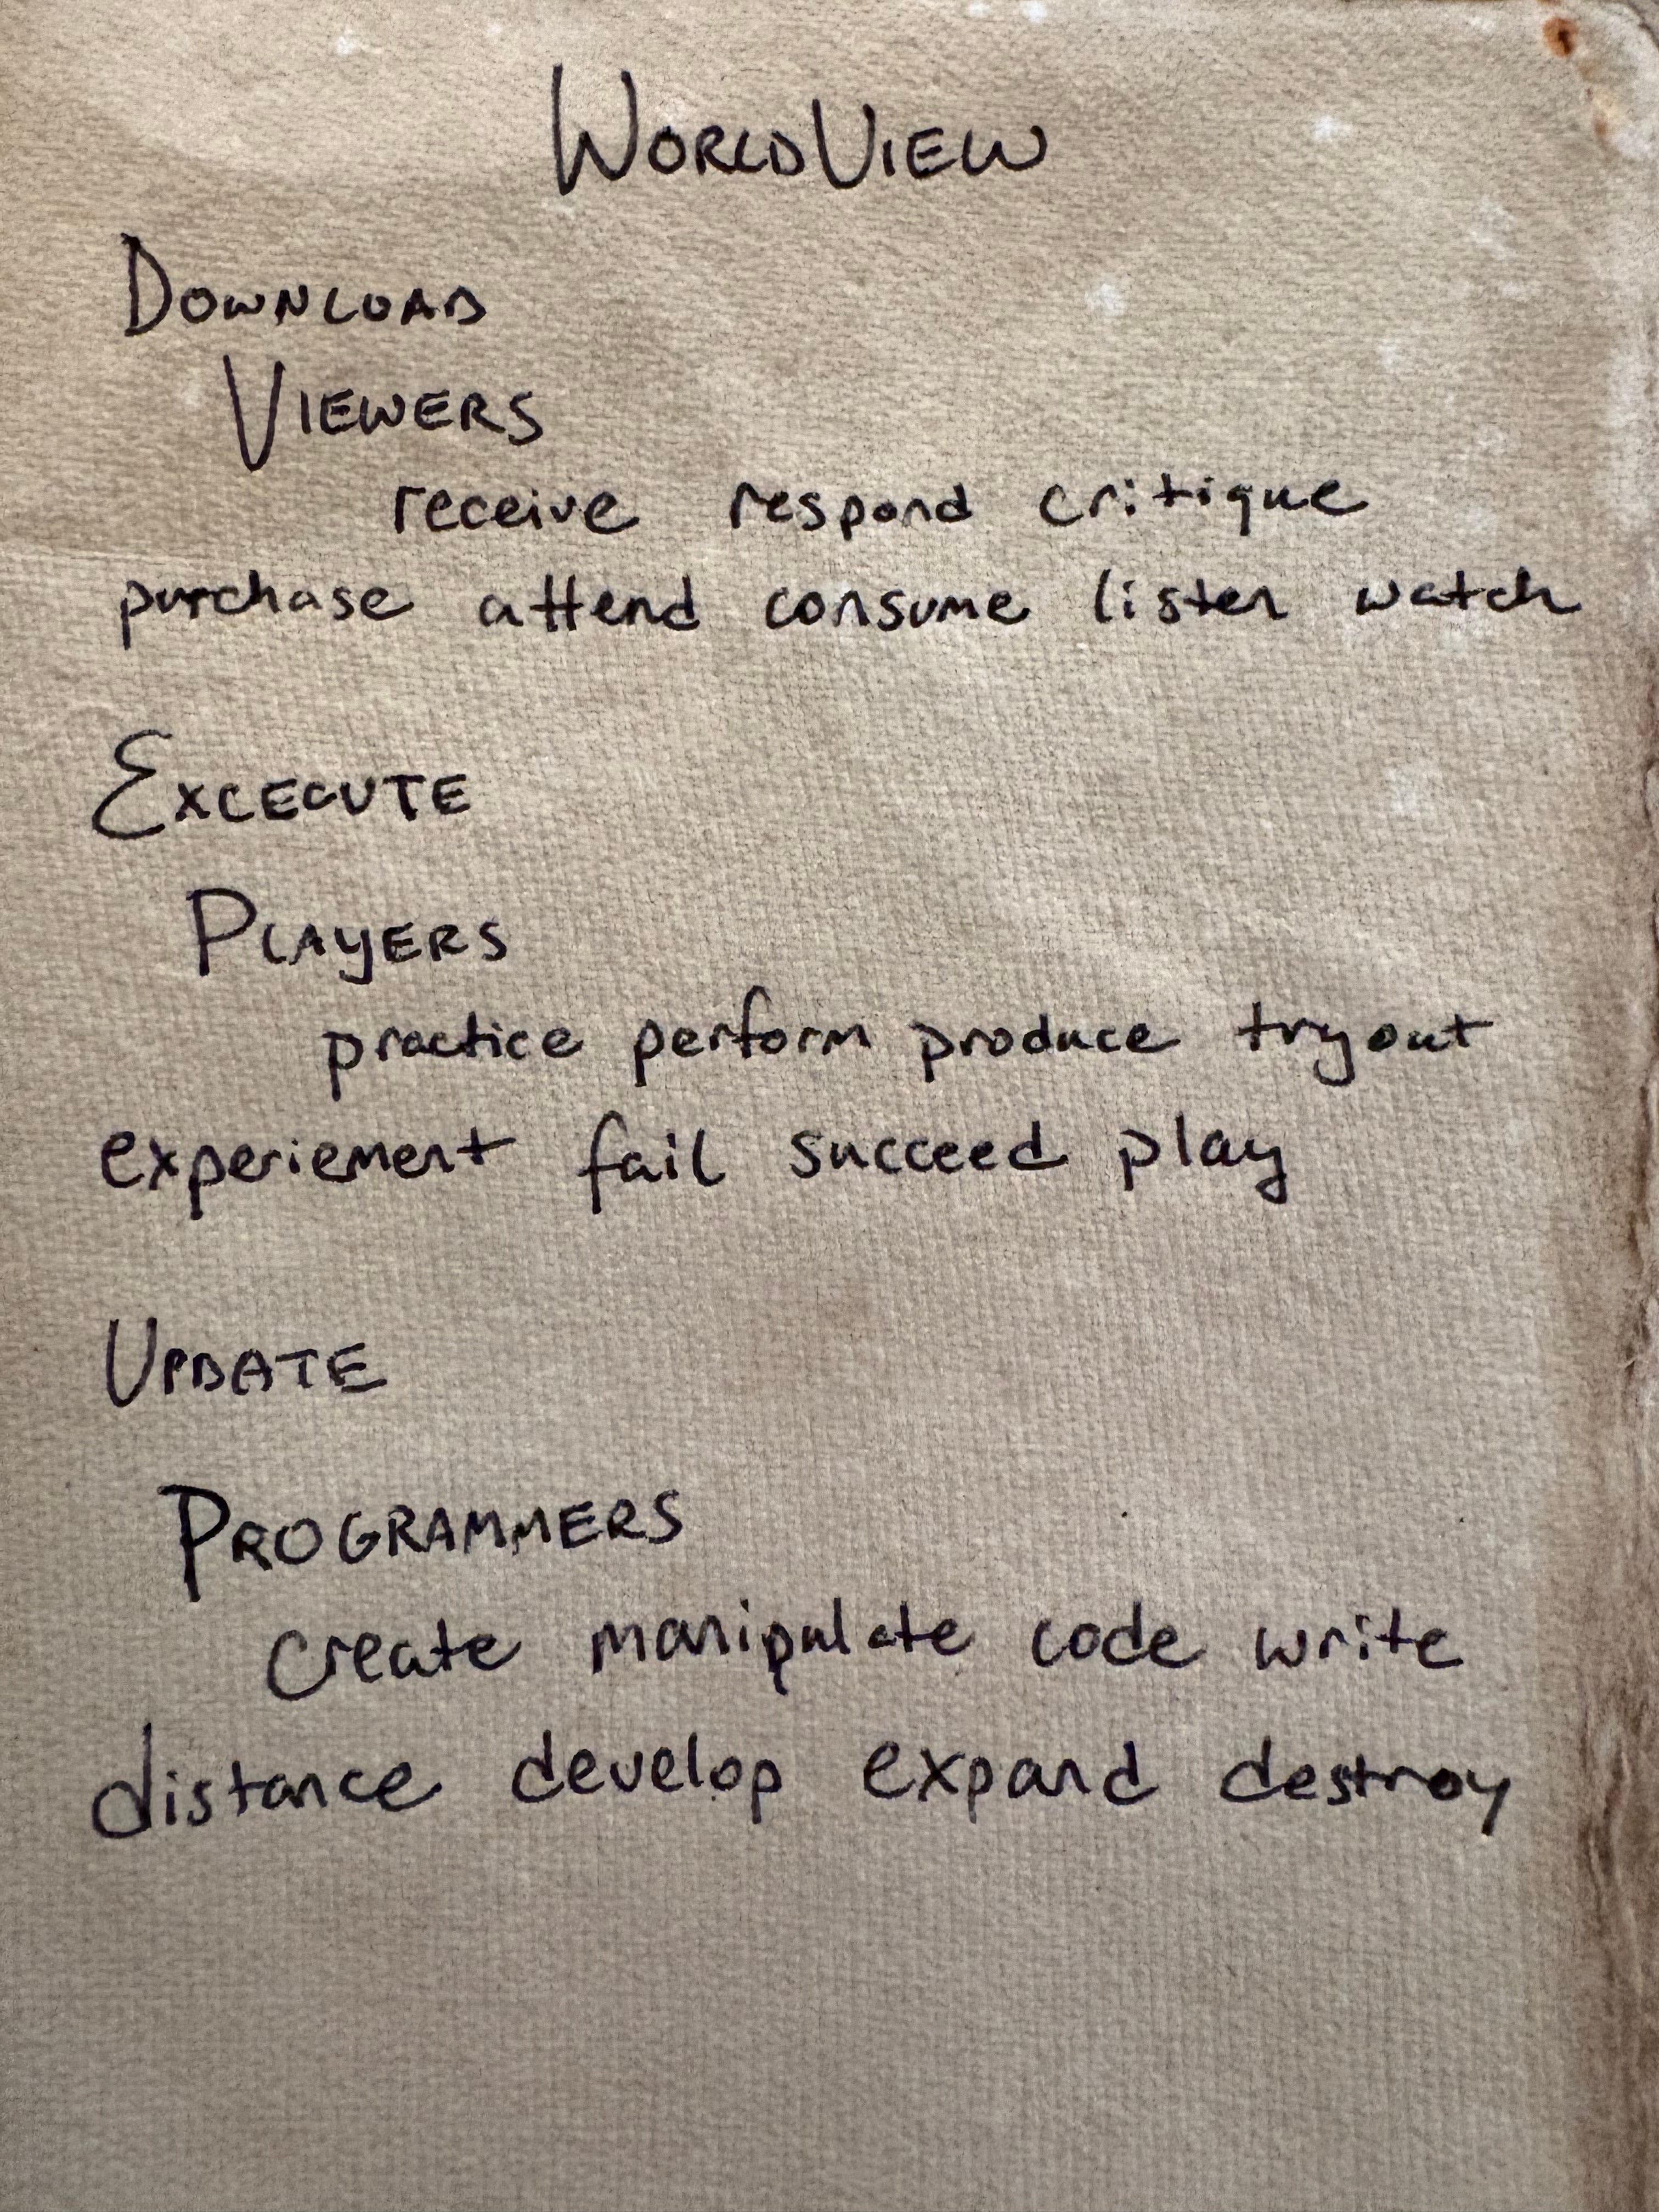 WORLDVIEW
DOWNLOAD
VIEWERS
receive respond critique
purchase attend consume listen watch
EXCECUTE
PLAYERS
practice perform produce tryout
experiement fail succeed play
UPDATE
PROGRAMMERS
create manipulate code write
distance develop expand destroy